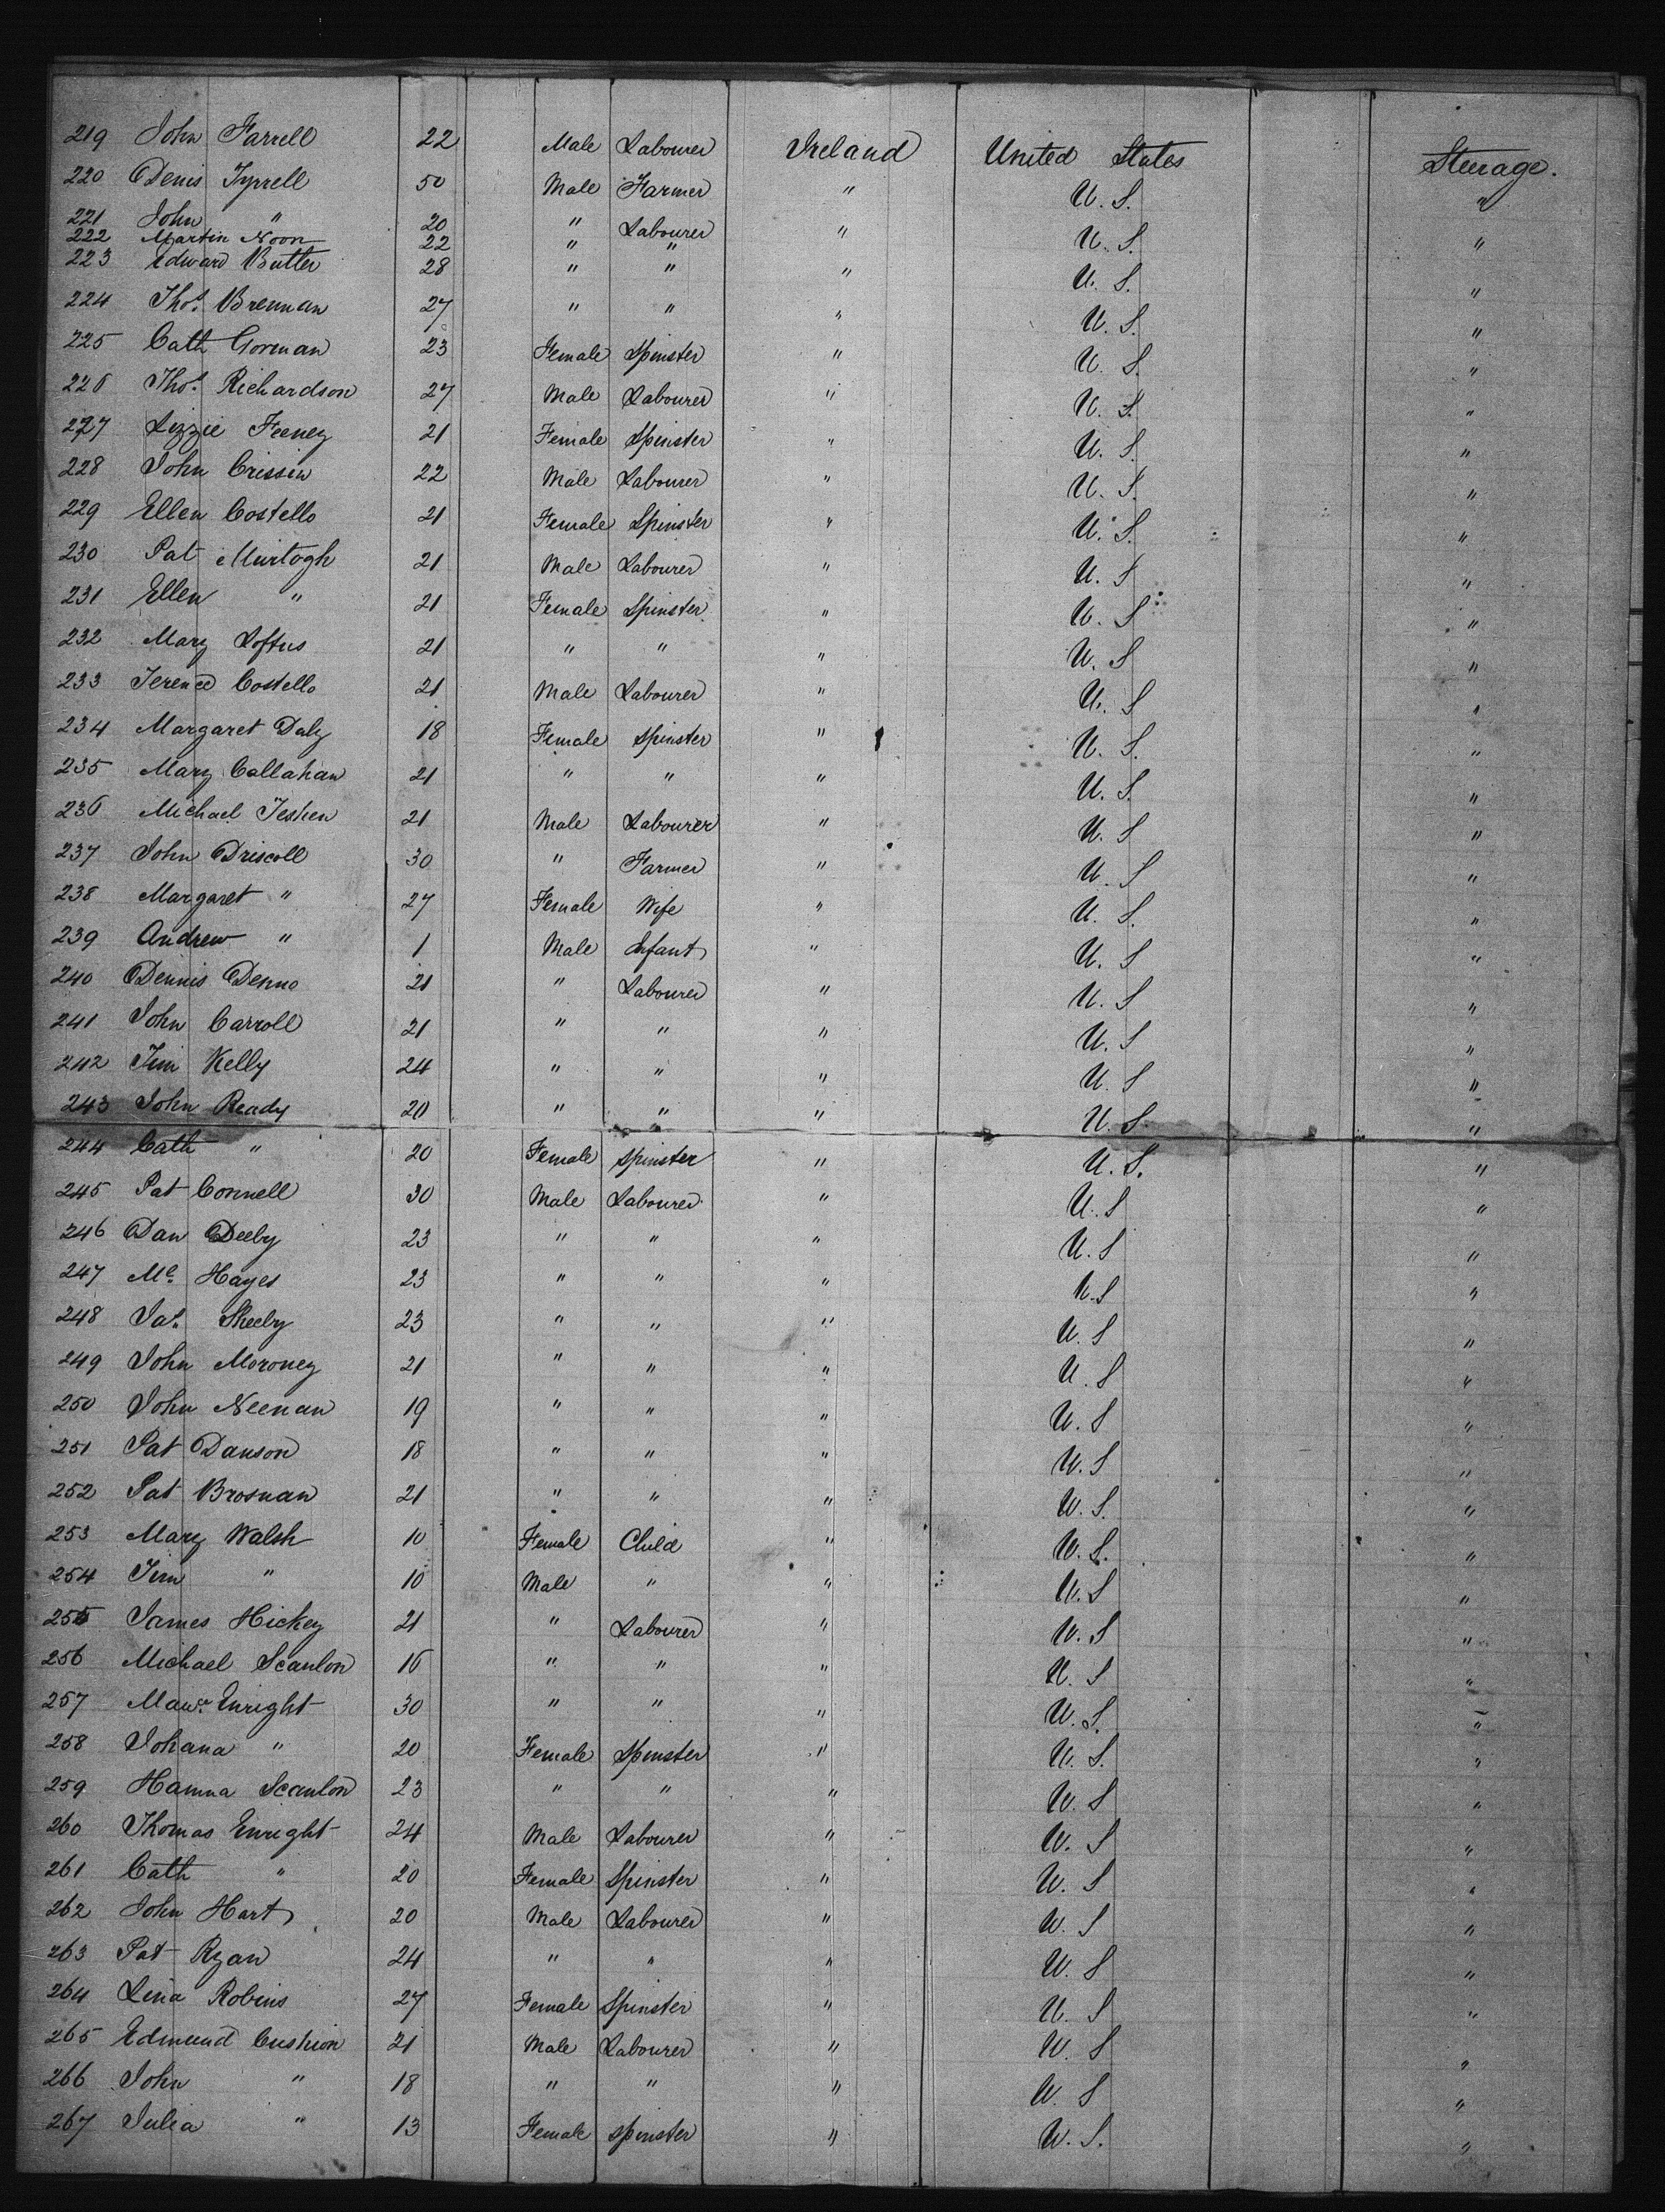 219 John Farrell 22 Male Labourer Ireland United States Steerage.
220 Denis Tyrrell 50 Male Farmer " U. S. "
221 John " 20 " Labourer " U. S. "
222 Martin Noon 22 " "
223 Edward Butler 28 " " " U. S. "
224 Thos. Brennan 27 " " " U. S. "
225 Cath Gorman 23 Female Spinster " U. S. "
226 Thos. Richardson 27 Male Labourer " U. S. "
227 Lizzie Feeney 21 Female Spinster " U. S. "
228 John Crissin 22 Male Labourer " U. S. "
229 Ellen Costello 21 Female Spinster " U. S. "
230 Pat Murtogh 21 Male Labourer " U. S "
231 Ellen " 21 Female Spinster " U. S "
232 Mary Loftus 21 " " " U. S "
233 Terence Costello 21 Male Labourer " U. S "
234 Margaret Daly 18 Female Spinster " U. S. "
235 Mary Callahan 21 " " " U. S. "
236 Michael 21 Male Labourer " U. S "
237 John Driscoll 30 " Farmer " U. S "
238 Margaret " 27 Female Wife " U. S. "
239 Andrew " 1 Male Infant " U. S "
240 Dennis 21 " Labourer " U. S "
241 John Carroll 21 " " " U. S "
242 Tim Kelly 24 " " " U. S "
243 John Ready 20 " " " U. S. "
244 Cath " 20 Female Spinster " U. S. "
245 Pat Connell 30 Male Labourer " U. S "
246 Dan Deeby 23 " " " U. S "
247 Mc. Hayes 23 " " " U. S "
248 Jas. Sheeby 23 " " " U. S "
249 John Moroney 21 " " " U. S "
250 John Neenan 19 " " " U. S "
251 Pat Dauson 18 " " " U. S "
252 Pat Brosnan 21 " " " U. S. "
253 Mary Walsh 10 Female Child " U. S. "
254 Tim " 10 Male " " U. S "
255 James Hickey 21 " Labourer " U. S "
256 Michael Scanlon 16 " " " U. S "
257 Maurce Enright 30 " " " U. S. "
258 Johana " 20 Female Spinster " U. S. "
259 Hanna Scanlon 23 " " " U. S "
260 Thomas Enright 24 Male Labourer " U. S "
261 Cath " 20 Female Spinster " U. S "
262 John Hart 20 Male Labourer " U. S "
263 Pat Ryan 24 " " " U. S "
264 Lena Robins 27 Female Spinster " U. S "
265 Edmund Cushion 21 Male Labourer " U. S "
266 John " 18 " " " U. S "
267 Julia " 13 Female Spinster " U. S. "